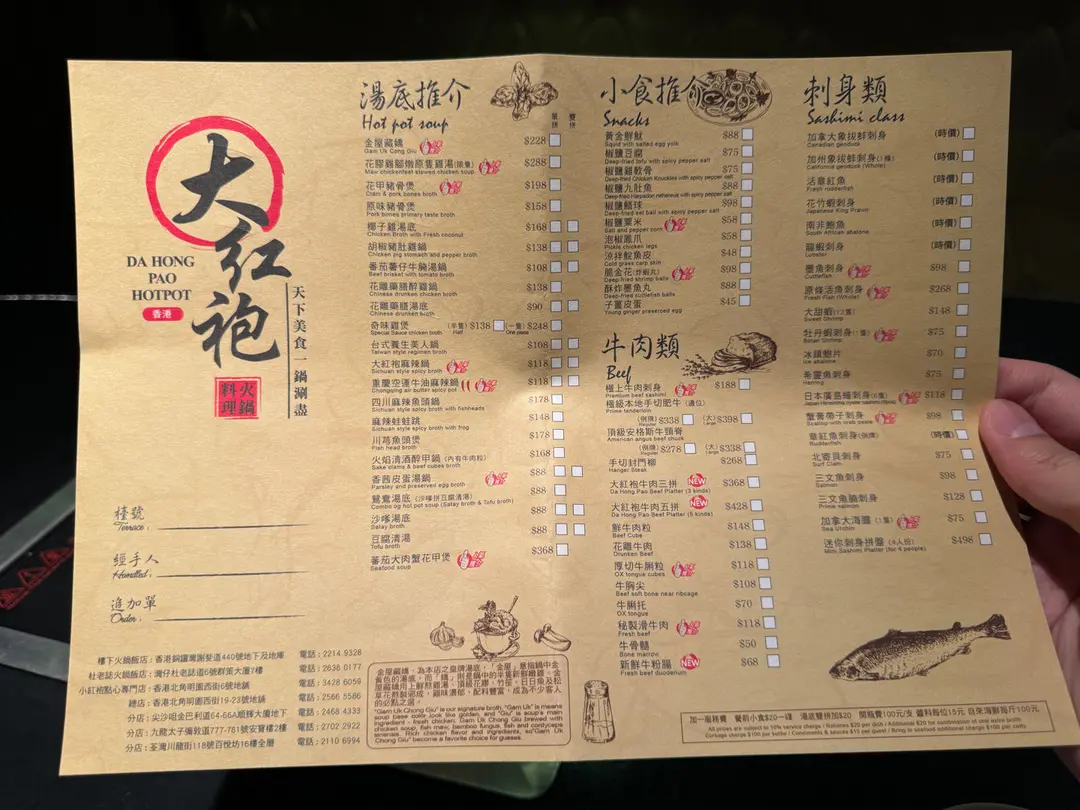 大紅袍
DA HONG
PAO
HOTPOT
香港
天下美食一鍋涮盡
火鍋
料理
檯號
Terrace:
經手人
Handled:
追加單
Order:
樓下火鍋飯店:香港銅鑼灣謝斐道440號地下及地庫 電話:2214 9328
杜老誌火鍋飯店:灣仔杜老誌道6號群策大廈1樓 電話:2638 0177
小紅袍點心專門店:香港北角明園西街6號地舖 電話:3428 6059
總店:香港北角明園西街19-23號地舖 電話:2566 5586
分店:尖沙咀金巴利道64-66A順輝大廈地下 電話:2468 4333
分店:九龍太子彌敦道777-781號安寶樓2樓 電話:2702 2922
分店:荃灣川龍街118號百悅坊16樓全層 電話:2110 6994
湯底推介
Hot pot soup
單拼
雙拼
金屋藏嬌 $228
Gam Uk Cong Giu
花膠雞腳燉原隻雞湯(限量) $288
Maw chickenfeet stewed chicken soup
花甲豬骨煲 $198
Clam & pork bones broth
原味豬骨煲 $158
Pork bones primary taste broth
椰子雞湯底 $168
Chicken Broth with Fresh coconut
胡椒豬肚雞鍋 $138
Chicken pig stomach and pepper broth
番茄薯仔牛腩湯鍋 $108
Beef brisket with tomato broth
花雕藥膳醉雞鍋 $138
Chinese drunken chicken broth
花雕藥膳湯底 $90
Chinese drunken broth
奇味雞煲 (半隻) $138 (一隻) $248
Special Sauce chicken broth Half One piece
台式養生美人鍋 $108
Taiwan style regimen broth
大紅袍麻辣鍋 $118
Sichuan style spicy broth
重慶空運牛油麻辣鍋 $118
Chongqing air butter spicy pot
四川麻辣魚頭鍋 $178
Sichuan style spicy broth with fishheads
麻辣蛙蛙跳 $148
Sichuan style spicy broth with frog
川芎魚頭煲 $178
Fish head broth
火焰清酒醉甲鍋(內有牛肉粒) $168
Sake clams & beef cubes broth
香茜皮蛋湯鍋 $88
Parsley and preserved egg broth
鴛鴦湯底(沙嗲拼豆腐清湯) $88
Combo og hot pot soup (Satay broth & Tofu broth)
沙嗲湯底 $88
Satay Broth
豆腐清湯 $88
Tofu broth
番茄大肉蟹花甲煲 $368
Seafood soup
金屋藏嬌,為本店之皇牌湯底,「金屋」意指鍋中金黃色的湯底,而「嬌」則是鍋中的半隻新鮮雞。金屋藏嬌用上鮮熬雞湯、頂級花膠、竹笙、日日魚及松草花熬製而成,雞味濃郁、配料豐富,成為不少客人的必點之選。
"Gam Uk Chong Giu"is our signature broth, "Gam Uk" is means soup base color look like golden, and "Giu" is soup's main ingredient - fresh chicken. Gam Uk Chong Giu brewed with chicken soup, fish maw, bamboo fungus, fish and cordyceps sinensis. Rich chicken flavor and ingredients, so"Gam Uk Chong Giu" become a favorite choice for guests.
小食推介
Snacks
黃金鮮魷 $88
Squid with salted egg yolk
椒鹽豆腐 $75
Deep-fried tofu with spicy pepper salt
椒鹽雞軟骨 $75
Deep-fried Chicken Knuckles with spicy pepper salt
椒鹽九肚魚 $88
Deep-fried Harpadon nehereus with spicy pepper salt
椒鹽鱔球 $98
Deep-fried eel ball with spicy pepper salt
椒鹽粟米 $58
Salt and pepper corn
泡椒鳳爪 $58
Pickle chicken legs
涼拌鯇魚皮 $48
Cold grass carp skin
脆金花(炸蝦丸) $98
Deep-fried shrimp balls
酥炸墨魚丸 $88
Deep-fried cuttlefish balls
子薑皮蛋 $45
Young ginger preserced egg
牛肉類
Beef
極上牛肉刺身 $188
Premium beef sashimi
極級本地手切肥牛(適位)
Prime tenderloin
(例牌) $338 (大) $398
Regular Large
頂級安格斯牛頸脊
American angus beef chuck
(例牌) $278 (大) $338
Regular Large
手切封門柳 $268
Hanger Steak
大紅袍牛肉三拼 NEW $368
Da Hong Pao Beef Platter (3 kinds)
大紅袍牛肉五拼 NEW $428
Da Hong Pao Beef Platter (5 kinds)
鮮牛肉粒 $148
Beef Cube
花雕牛肉 $138
Drunken Beef
厚切牛脷粒 $118
OX tongue cubes
牛胸尖 $108
Beef soft bone near ribcage
牛脷托 $70
OX tongue
秘製滑牛肉 $118
Fresh beef
牛骨髓 $50
Bone marrow
新鮮牛粉腸 NEW $68
Fresh beef duodenum
刺身類
Sashimi class
加拿大象拔蚌刺身 (時價)
Canadian geoduck
加州象拔蚌刺身(1條) (時價)
California geoduck
活章紅魚 (時價)
Fresh rudderfish
花竹蝦刺身 (時價)
Japanese King Prawn
南非鮑魚 (時價)
South African abalone
龍蝦刺身 (時價)
Lobster
墨魚刺身 $98
Cuttlefish
原條活魚刺身 $268
Fresh Fish (Whole)
大甜蝦(12隻) $148
Sweet Shrimp
牡丹蝦刺身(1隻) $75
Botan Shrimp
冰鎮鮑片 $70
Ice abalone
希靈魚刺身 $75
Herring
日本廣島蠔刺身(6隻) $118
Japan Hiroshima oyster sashimi
蟹膏帶子刺身 $98
Scallop with crab paste
章紅魚刺身(例牌) (時價)
Rudderfish
北寄貝刺身 $75
Surf Clam
三文魚刺身 $98
Salmon
三文魚腩刺身 $128
Prime salmon
加拿大海膽(1隻) $75
Sea Urchin
迷你刺身拼盤(4人份) $498
Mini Sashimi Platter (for 4 people)
加一服務費 餐前小食$20一碟 湯底雙拼加$20 開瓶費100元/支 醬料每位15元 自來海鮮每斤100元
All prices are subject to 10% service charge / Relishes $20 per dish / Additional $20 for combination of one extra broth
Corkage charge $100 per bottle / Condiments & sauces $15 per guest / Bring to seafood additional charge $100 per catty